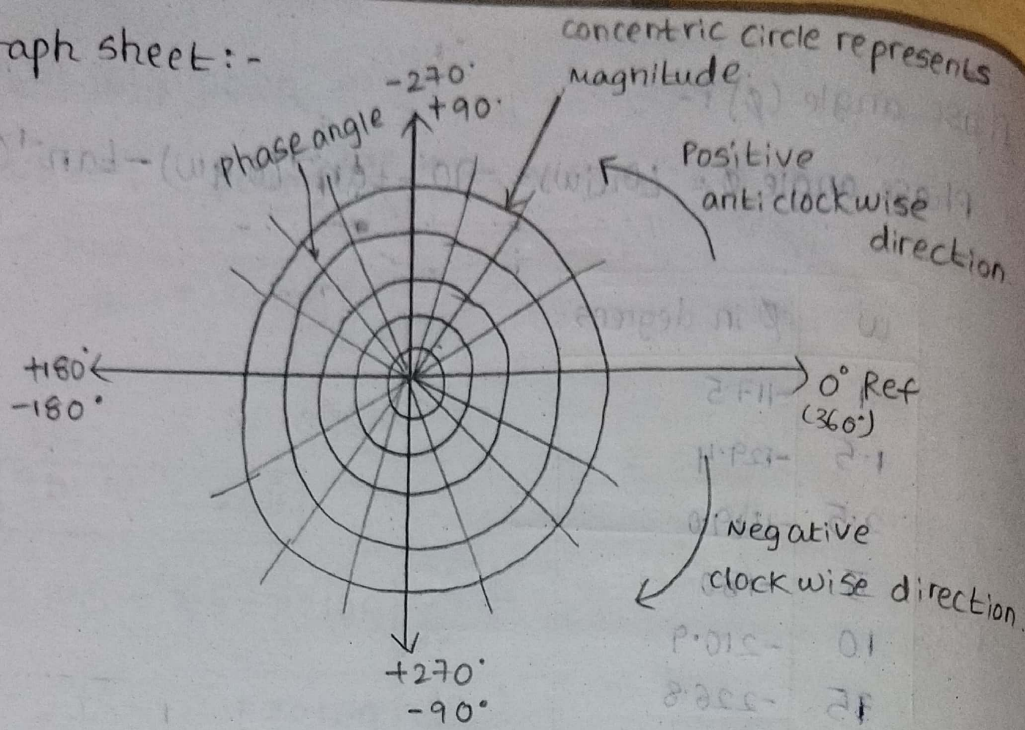 aph sheet:-
concentric circle represents
magnitude.
-270°
+90°
phase angle
Positive
anticlockwise
direction
+180°
-180°
0° Ref
(360°)
Negative
clockwise direction.
+270°
-90°